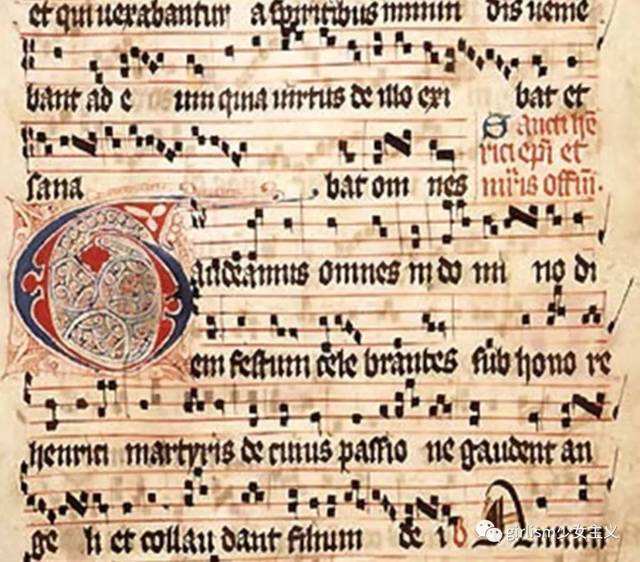 et qui uexabantur a spiritibus immun dis uenie
bant ad e um quia uirtus de illo exi bat et
sana bat om nes
Sancti hē
rici epi et
mris offm.
Gaudeamus omnes in do mi no di
em festum cele brantes sub hono re
henrici martyris de cuius passio ne gaudent an
ge li et collau dant filium de i V Annu
girlism少女主义